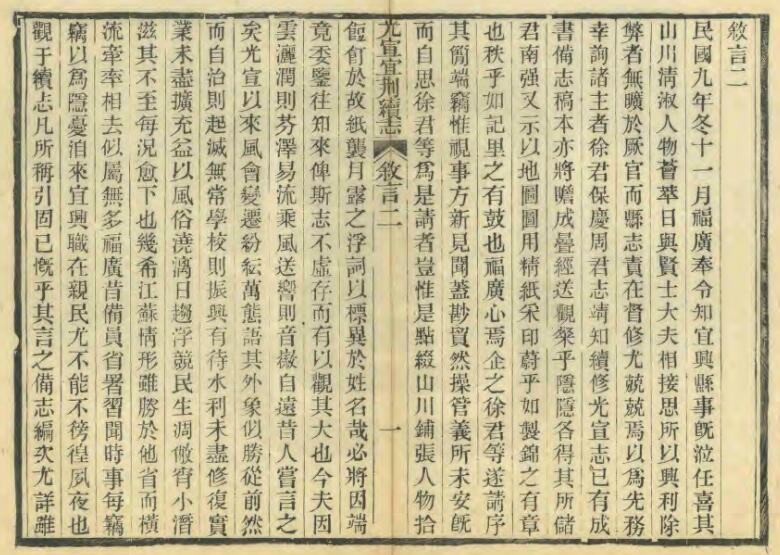 敘言二
民國九年冬十一月福廣奉令知宜興縣事旣涖任喜其
山川清淑人物薈萃日與賢士大夫相接思所以興利除
弊者無曠於厥官而縣志責在督修尤兢兢焉以為先務
幸詢諸主者徐君保慶周君志靖知續修光宣志已有成
書備志稿本亦將謄成曡經送觀粲乎隱隱各得其所儲
君南强又示以地圖圖用精紙采印蔚乎如製錦之有章
也秩乎如記里之有鼓也福廣心焉企之徐君等遂請序
其簡端竊惟視事方新見聞蓋尠貿然操管義所未安旣
而自思徐君等為是請者豈惟是點綴山川鋪張人物拾
光宣宜荆續志 敘言二 一
餖飣於故紙襲月露之浮詞以標異於姓名哉必將因端
竟委鑒往知來俾斯志不虛存而有以觀其大也今夫因
雲灑潤則芬澤易流乘風送響則音徽自遠昔人嘗言之
矣光宣以來風會變遷紛紜萬態語其外象似勝從前然
而自治則起滅無常學校則振興有待水利未盡修復實
業未盡擴充益以風俗澆漓日趨浮競民生凋僘宵小潛
滋其不至每況愈下也幾希江蘇情形雖勝於他省而橫
流牽率相去似屬無多福廣昔備員省署習聞時事每竊
竊以為隱憂洎來宜興職在親民尤不能不徬徨夙夜也
觀于續志凡所稱引固已慨乎其言之備志編次尤詳雖